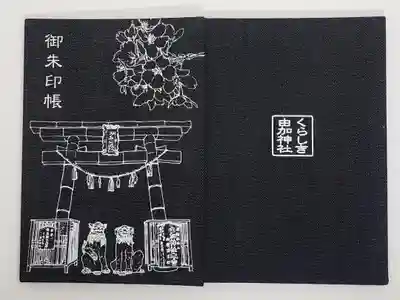 御朱印帳
くらしき
由加神社